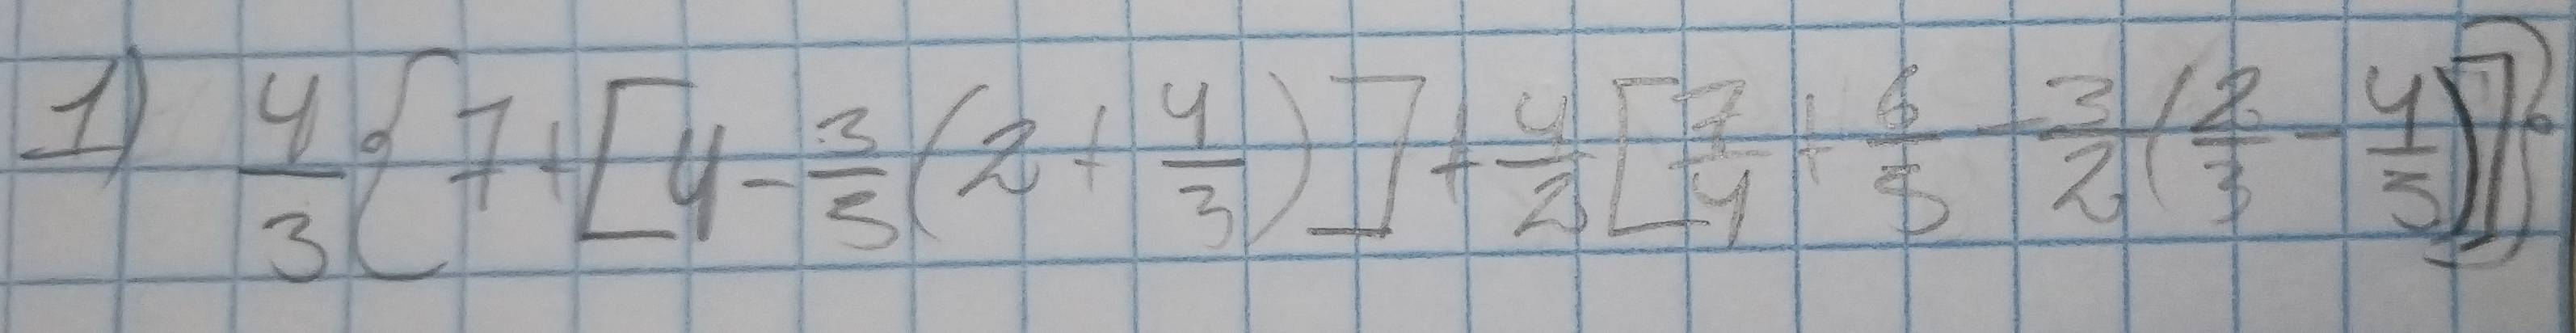 1) 4/3 { 7 + [ 4 - 3/5 ( 2 + 4/3 ) ] + 4/2 [ 7/4 + 6/5 - 3/2 ( 2/3 - 4/5 ) ] }